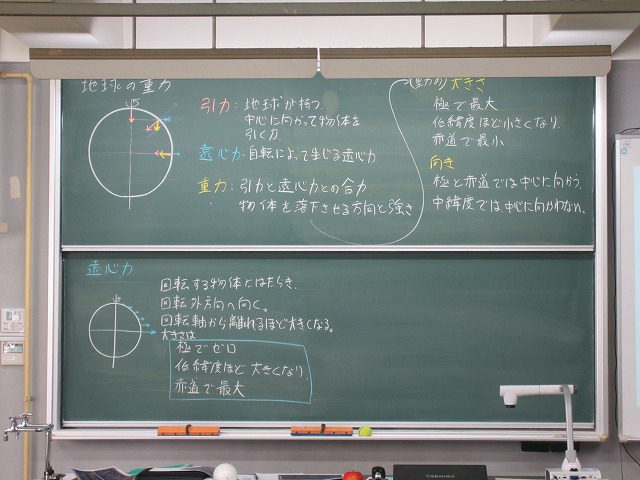 地球の重力
引力：地球が持つ、
中心に向かって物体を
引く力
遠心力：自転によって生じる遠心力
重力：引力と遠心力との合力
物体を落下させる方向と強さ
(重力の)大きさ
極で最大
低緯度ほど小さくなり、
赤道で最小
向き
極と赤道では中心に向かう。
中緯度では中心に向かわない。
遠心力
回転する物体にはたらき、
回転外方向へ向く。
回転軸から離れるほど大きくなる。
大きさは
極でゼロ
低緯度ほど大きくなり、
赤道で最大